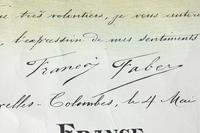 très volontiers, je vous
l'expression de mes sentiments
François Faber
-Colombes, le 4 Mai
FRANCE